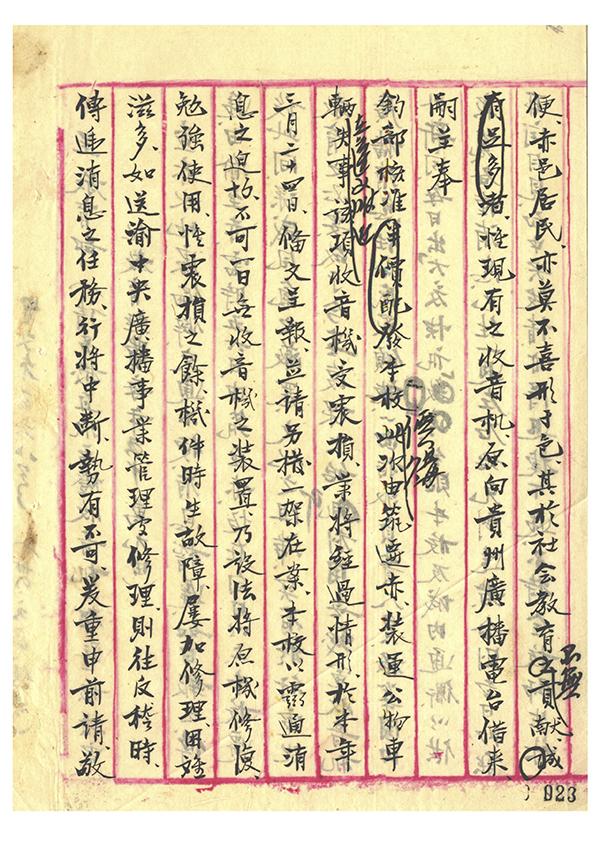 便赤邑居民、亦莫不喜形于色、其於社会教育不無貢献誠
有足多者、惟現有之收音机、原向貴州廣播電台借来、
嗣呈奉
鈞部核准半價配發本校此次由筑遷赤、装運公物車
輛失事該項收音機受震損、業将經過情形、於本年
三月二十四日、俻文呈報、並請另撥一架在案、本校以靈通消
息之迫切、不可一日無收音機之装置乃設法将原機修復、
勉强使用、惟震損之餘、機件時生故障屢加修理困難
滋多、如送渝中央廣播事業管理處修理、則往反稽時、
傳遞消息之任務、行将中斷、勢有不可、爰重申前請、敬
023